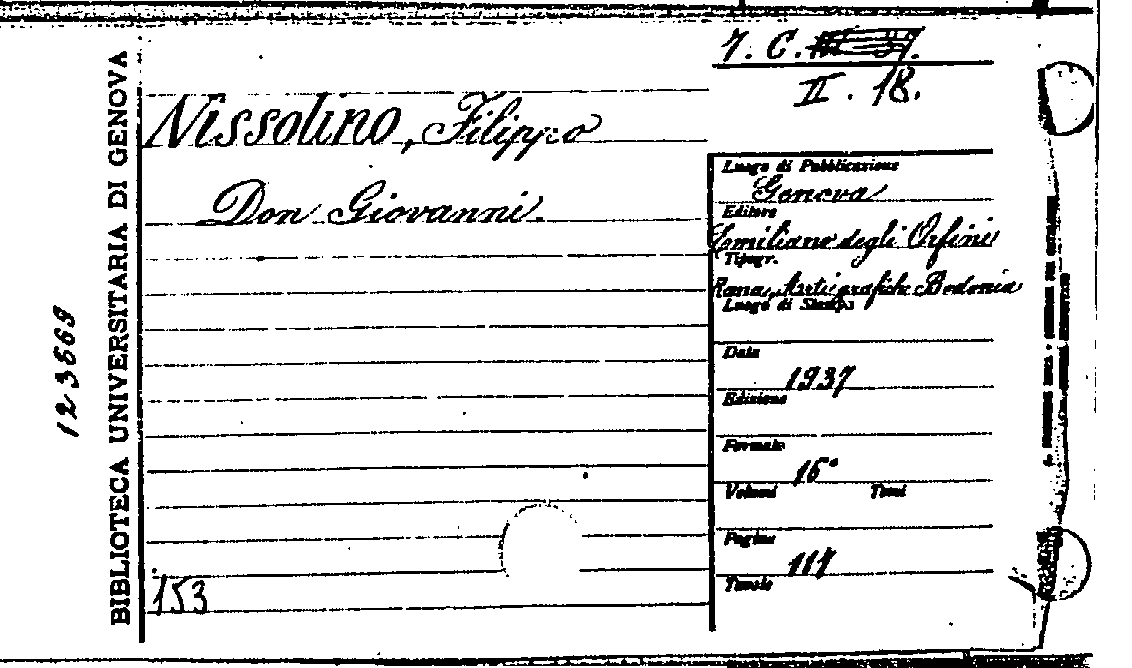 7. C. III 37.
II. 18.
BIBLIOTECA UNIVERSITARIA DI GENOVA
123569
Nissolino, Filippo
Don Giovanni.
153
Luogo di Pubblicazione
Genova
Editore
Emiliano degli Orfini
Tipogr.
Arti grafiche Bodonia
Luogo di Stampa
Data
1937
Edizione
Formato
16°
Volumi Tomi
Pagine
114
Tavole